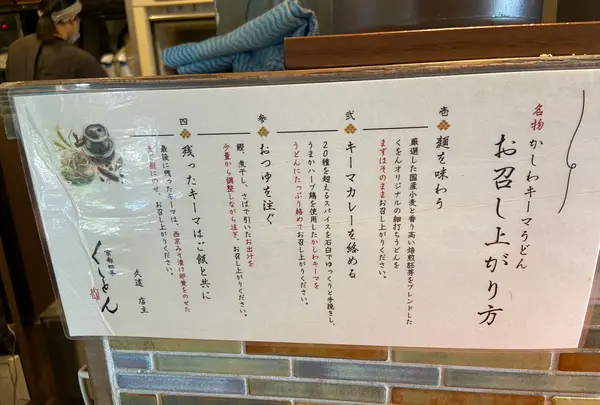 名物 かしわキーマうどん
お召し上がり方
壱
麺を味わう
厳選した国産小麦と香り高い焙煎胚芽をブレンドした
くをんオリジナルの細打ちうどんを
まずはそのままお召し上がりください。
弐
キーマカレーを絡める
20種を超えるスパイスを石臼でゆっくりと手挽きし、
うまかハーブ鶏を使用したかしわキーマを
うどんにたっぷり絡めてお召し上がりください。
参
おつゆを注ぐ
鰹、煮干し、さばで引いたお出汁を
少量から調整しながら注ぎ、お召し上がりください。
四
残ったキーマはご飯と共に
最後に残ったキーマは、西京みそ漬け卵黄をのせた
ご飯にのせ、お召し上がりください。
久遠 店主
京都四条
くをん